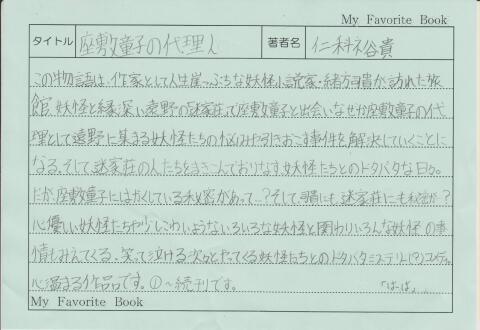 My Favorite Book
タイトル 座敷童子の代理人 著者名 仁科裕貴
この物語は、作家として人生崖っぷちな妖怪小説家・緒方司貴が訪れた旅
館 妖怪と縁深い遠野の迷家荘って座敷童子と出会いなぜか座敷童子の代
理として遠野に集まる妖怪たちの悩みや引きおこす事件を解決していくことに
なる。そして迷家荘の人たちをまきこんでおりなす妖怪たちとのドタバタな日々。
だが座敷童子にはかくしている秘密があって…?そして司貴にも迷家荘にも秘密が?
心優しい妖怪たちや少しこわいようないろいろな妖怪と関わりいろんな妖怪の事
情もみえてくる、笑って泣ける次々とやってくる妖怪たちとのドタバタミステリー(?)コメディ。
心温まる作品です。①〜続刊です。 「はは。
My Favorite Book